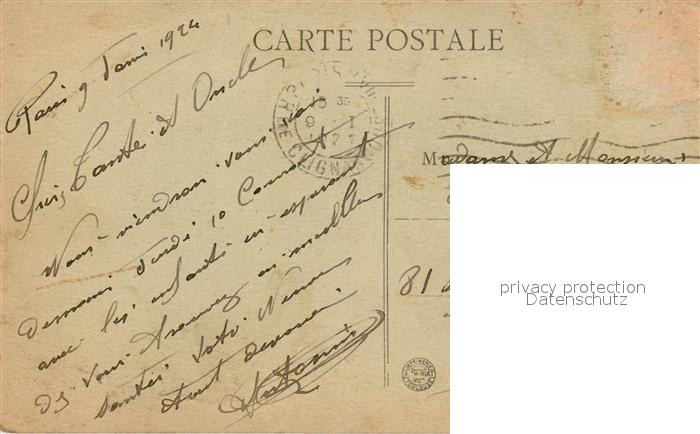 CARTE POSTALE
Paris 9 Janvi 1924
Chers Tante et Oncle
Nous viendrons vous voir
demain Jeudi 10 Courant
avec les enfants en esperant
de vous trouver en meilleur
santé Votre Neveu
tout devoué
Antonin
Madame et Monsieur
81
privacy protection
Datenschutz